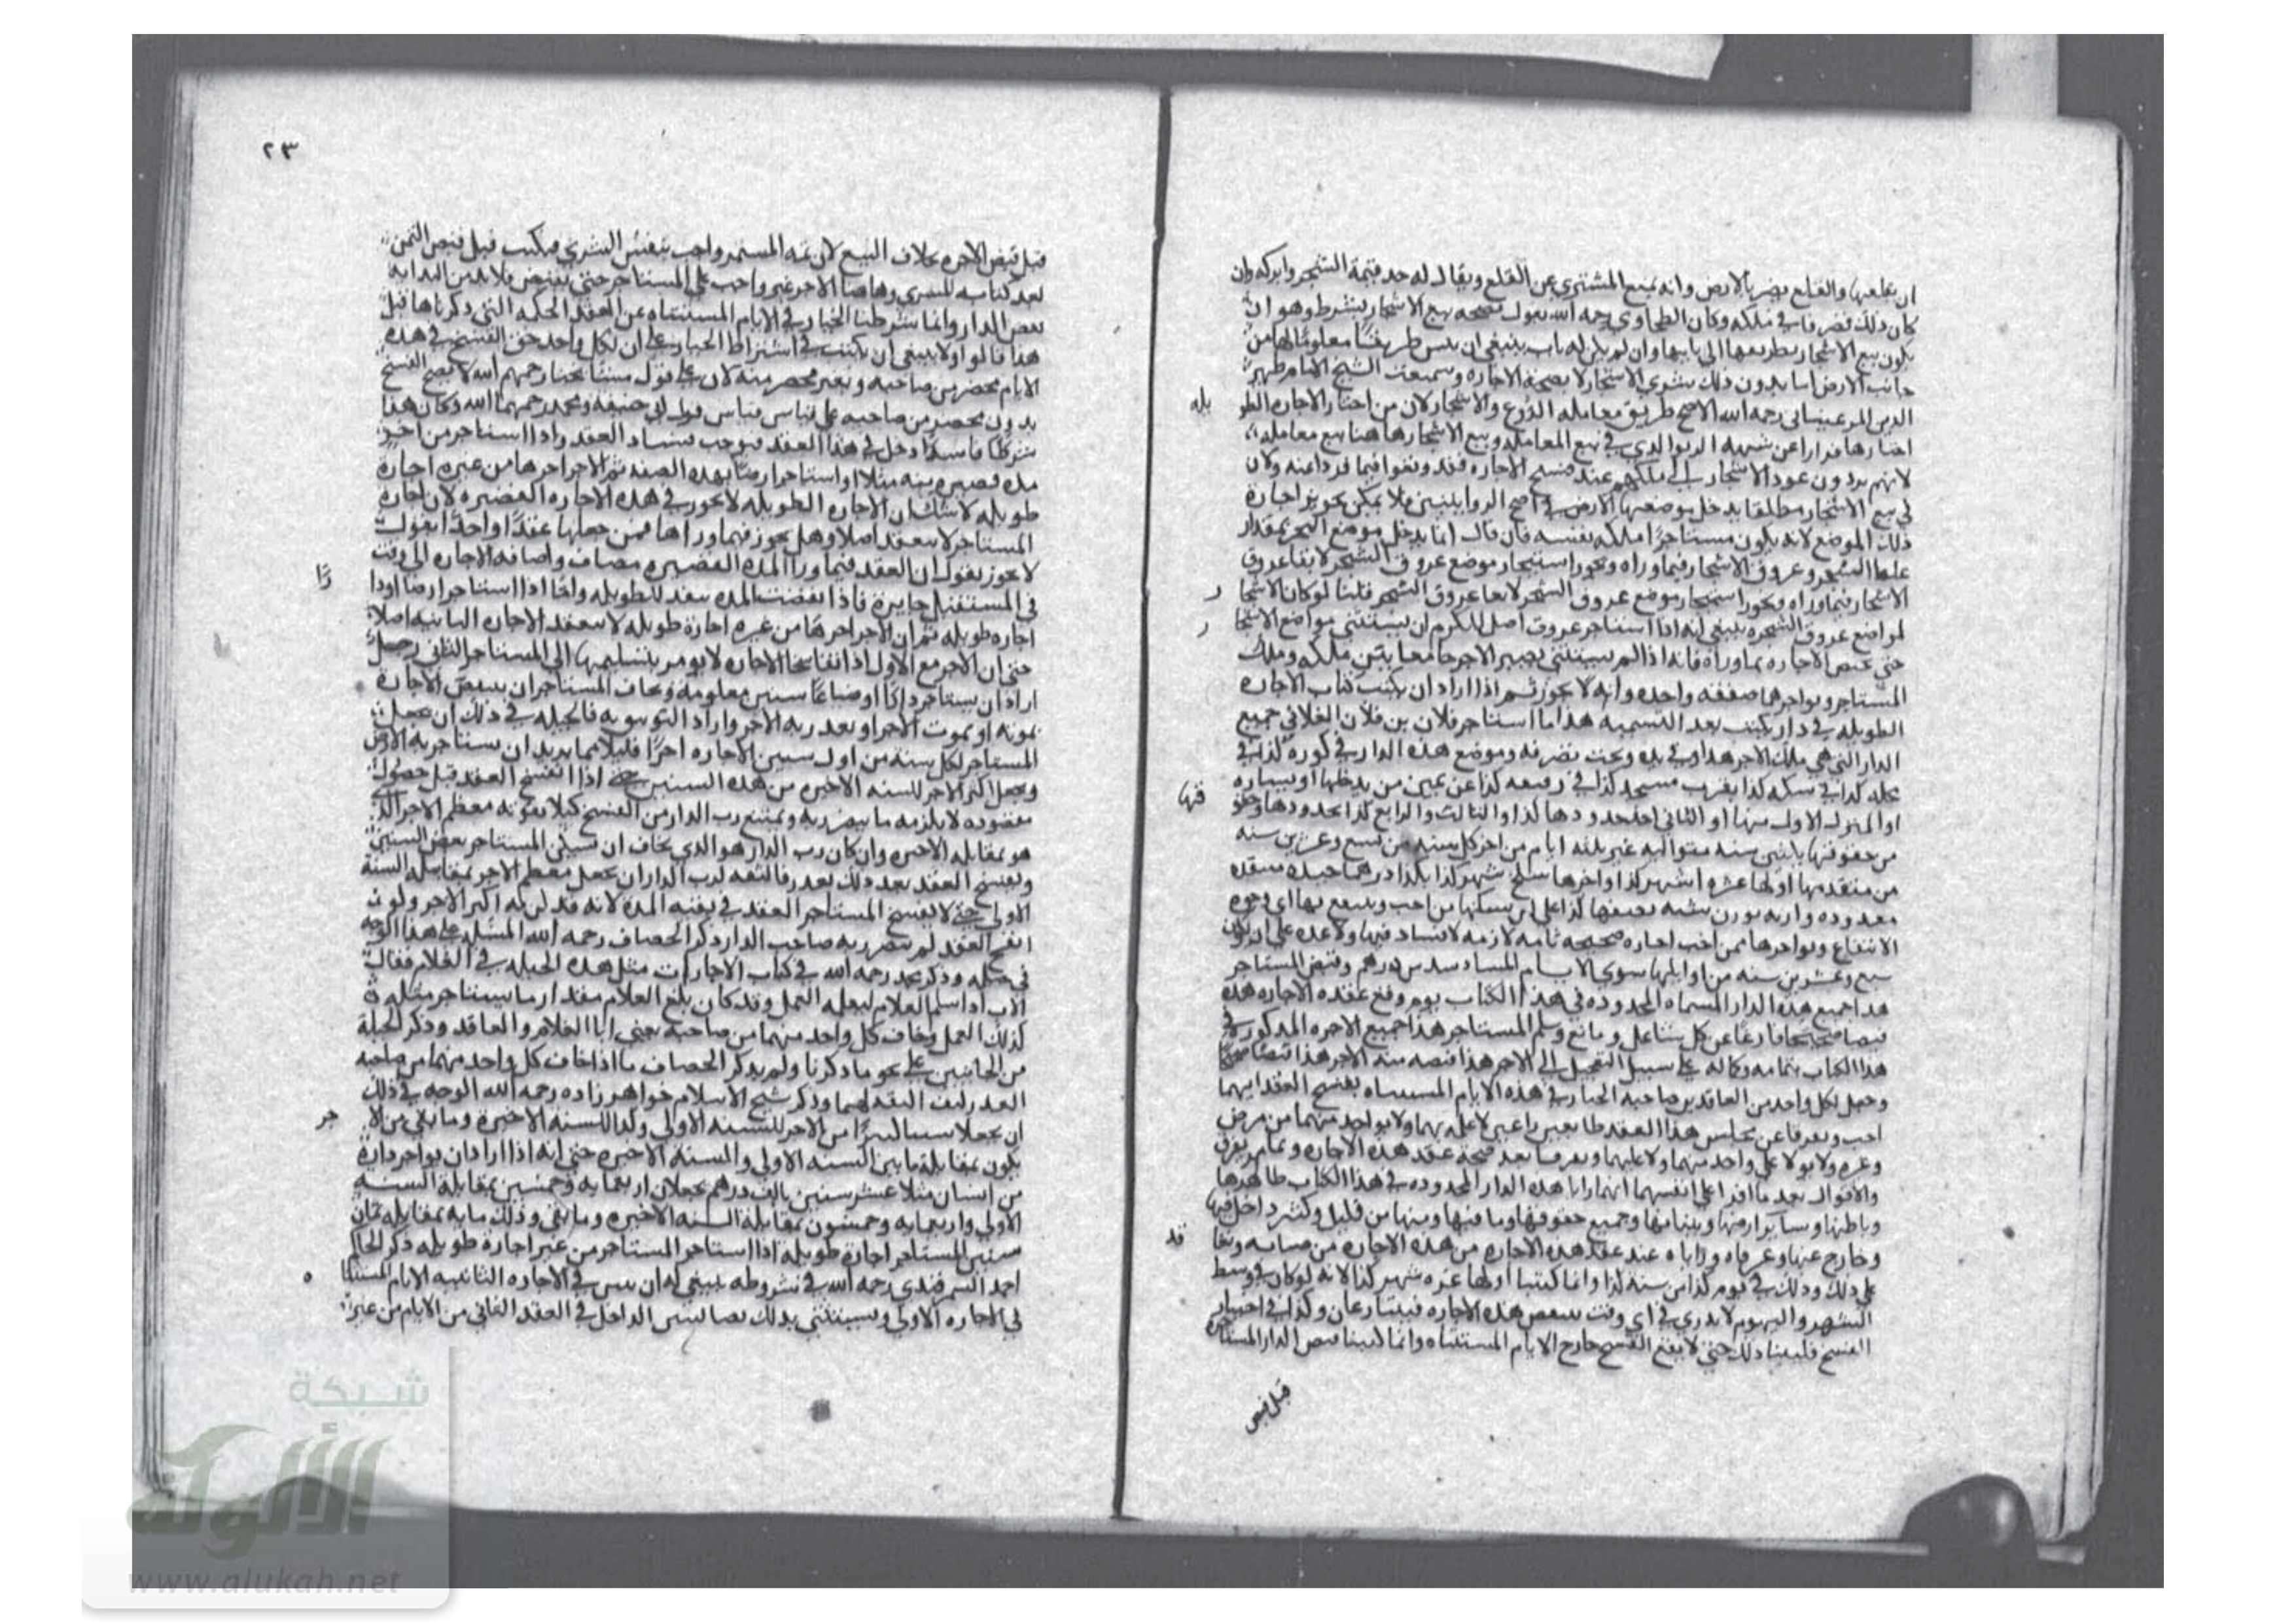 ان يقلعها والقلع يضر بالارض وانه يمنع المشتري عن القلع ويقال له خذ قيمة الشجر واتركه وان
كان ذلك تصرفا في ملكه وكان الطحاوي رحمه الله يقول بصحة بيع الاشجار بشرط وهو ان
يكون بيع الاشجار بطريقها الى بابها وان لم يكن له باب ينبغي ان يبين طريقا معلوما لها من
جانب الارض اما بدون ذلك شري الاشجار لا بصحة الاجارة وسمعت الشيخ الامام ظهير
الدين المرغيناني رحمه الله الاصح طريق معاملة الزرع والاشجار لان من اختار الاجارة الطو
يله
اختارها فرارا عن شبهة الربوا الذي في بيع المعاملة وبيع الاشجار هاهنا بيع معاملة
لانهم يريدون عود الاشجار الى ملكهم عند فسخ الاجارة فقد وقعوا فيما فروا عنه ولان
في بيع الاشجار مطلقا يدخل موضعها من الارض في اصح الروايتين فلا يمكن تجويز اجارة
ذلك الموضع لانه يكون مستاجرا ملكه بنفسه فان قال انما يدخل موضع الشجر بمقدار
غلظ الشجر وعروق الاشجار فيما وراه ويجوز استيجار موضع عروق الشجر لابقا عروق
الاشجار فيما وراه ويجوز استيجار موضع عروق الشجر لابقا عروق الشجر قلنا لو كان الاشجا
ر
لمواضع عروق الشجرة ينبغي انه اذا استاجر عروق اصل الكرم ان يستثني مواضع الاشجا
ر
حتى تختص الاجارة بما وراه فانه اذا لم يستثني يصير الاجر جامعا بين ملكه وملك
المستاجر ويواجرهما صفقة واحدة وانه لا يجوز ثم اذا اراد ان يكتب كتاب الاجارة
الطويلة في دار يكتب بعد التسمية هذا ما استاجر فلان بن فلان الفلاني جميع
الدار التي هي ملك الاجر هذا وفي يده وتحت تصرفه وموضع هذه الدار في كورة كذا في
محلة كذا في سكة كذا بقرب مسجد كذا في رقيعة كذا عن يمين من يدخلها او يساره
فيها
او المنزل الاول منها او الثاني احد حدودها كذا والثالث والرابع كذا بحدودها وحقو
من حقوقها ثلثين سنة متوالية غير ثلثة ايام من اخر كل سنة من تسع وعشرين سنة
من متقدمها اولها عشرة اشهر كذا واخرها سلخ شهر كذا بكذا درهما جيدة منتقدة
الانتفاع ويواجرها ممن احب اجارة صحيحة تامة لازمة لا فساد فيها ولا عدة على ان تكون
سبع وعشرين سنة من اوايلها سوى الايام المستثناة سدس درهم وقبض المستاجر
هذا جميع هذه الدار المسماة المحدودة في هذا الكتاب يوم وقع عقدة الاجارة هذه
قبضا صحيحا فارغا عن كل شاغل ومانع وسلم المستاجر هذا جميع الاجرة المذكور في
هذا الكتاب بتمامه وكماله على سبيل التعجيل الى الاجر هذا قبضه منه الاجر هذا قبضا صحيحا
وجعل لكل واحد من العاقدين صاحبه الخيار في هذه الايام المستثناة بفسخ العقد ايهما
احب وتفرقا عن مجلس هذا العقد طايعين راغبين لا علة بهما ولا بواحد منهما من مرض
وغيره ولا بولا على واحد منهما ولا عليهما وتفرقا بعد صحة عقد هذه الاجارة وتمام تفرق
والاقوال بعد ما اقرا على انفسهما انهما رايا هذه الدار المحدودة في هذا الكتاب ظاهرها
وباطنها وساير ارضها وبنايها وجميع حقوقها وما فيها ومنها من قليل وكثير داخل فيها
وخارج عنها وعرفاه ورایاه عند عقد هذه الاجارة من هذه الاجارة من وتعا
قد
على ذلك وذلك في يوم كذا من سنة كذا وانما كتبنا اولها غرة شهر كذا لانه لو كان في وسط
الشهر واليوم لا يدري في اي وقت ينتقض هذه الاجارة فيتنازعان وكذا في اختيار
الفسخ فلبينا ذلك حتى لا يقع الفسخ خارج الايام المستثناة وانما كتبنا قبض الدار المستاجرة
قبل قبض
٢٣
قبل قبض الاجرة بخلاف البيع لان ثمة المستمر واجب بنفس الشري فيكتب قبل قبض الثمن
بعد كتابه للشري وهاهنا الاجر غير واجب على المستاجر حتى يقبض فلا بد من البداية
بقبض الدار وانما شرطنا الخيار في الايام المستثناة عن العقد الحكمة التي ذكرناها قبل
هذا قالوا ولا ينبغي ان يكتب في اشتراط الخيار على ان لكل واحد حق الفسخ في هذه
الايام بمحضر من صاحبه وبغير محضر منه لان على قول مشايخنا رحمهم الله لا يصح الفسخ
بدون محضر من صاحبه على قياس قياس قول ابي حنيفة ومحمد رحمهما الله وكان هذا
شرطا فاسدا دخل في هذا العقد فيوجب فساد العقد واذا استاجر من اخر
مدة قصيرة سنة مثلا او استاجر ارضا بهذه الصفة ثم الاجر اجرها من غيره اجارة
طويلة لا شك ان الاجارة الطويلة لا تجوز في هذه الاجارة القصيرة لان اجارة
المستاجر لا ينعقد اصلا وهل يجوز فيما وراها فمن جعلها عقدا واحدا يقول
لا يجوز يقول ان العقد فيما ورا المدة القصيرة مضاف واضافة الاجارة الى وقت
في المستقبل جايزة فاذا انقضت المدة ينعقد للطويلة واما اذا استاجر ارضا او دا
رًا
اجارة طويلة ثم ان الاجر اجرها من غيره اجارة طويلة لا ينعقد الاجارة الثانية اصلا
حتى ان الاجر مع الاول اذا تفاسخا الاجارة لا يومر بتسليمها الى المستاجر الثاني رجل
اراد ان يستاجر دارا او ضياعا سنين معلومة ويخاف المستاجر ان ينتقض الاجارة
بموته او بموت الاجر او بعد ربه الاجر واراد التوسوية فالحيلة في ذلك ان يجعل
المستاجر لكل سنة من اول سنين الاجارة اجرا قليلا مما يريد ان يستاجر به الارض
ويجعل اكثر الاجر للسنة الاخيرة من هذه السنين حتى اذا انفسخ العقد قبل حصول
مقصوده لا يلزمه ما يضر به ويمتنع رب الدار من الفسخ كيلا يفوته معظم الاجر الذي
هو بمقابلة الاخيرة وان كان رب الدار هو الذي يخاف ان يسكن المستاجر بعض السنين
ويفسخ العقد بعد ذلك بعذر فالثقة لرب الدار ان يجعل معظم الاجر بمقابلة السنة
الاولى حتى لا يفسخ المستاجر العقد في بقية المدة لانه قد لزمه اكثر الاجر ولو
انفسخ العقد لم يتضرر به صاحب الدار ذكر الخصاف رحمه الله المسئلة على هذا الوجه
في حيله وذكر محمد رحمه الله في كتاب الاجارات مثل هذه الحيلة في الغلام فقال
الاب اذا سلم الغلام ليعلمه العمل وقد كان بلغ الغلام مقدار ما يستاجر مثله في
كذلك العمل وخاف كل واحد منهما من صاحبه يعني ابا الغلام والعاقد وذكر الحيلة
من الجانبين على نحو ما ذكرنا ولم يذكر الخصاف ما اذا خاف كل واحد منهما من صاحبه
العذر كيف الثقة لهما وذكر شيخ الاسلام خواهر زاده رحمه الله الوجه في ذلك
ان يجعلا شيئا كثيرا من الاجر للسنة الاولى وكذا للسنة الاخيرة وما بقي من الا
جر
يكون بمقابلة ما بين السنة الاولى والسنة الاخيرة حتى انه اذا اراد ان يواجر دارة
من انسان مثلا عشر سنين بالف درهم يجعلان اربعماية وخمسين بمقابلة السنة
الاولى واربعماية وخمسون بمقابلة السنة الاخيرة وما بقي وذلك ماية بمقابلة ثمان
سنين المستاجر اجارة طويلة اذا استاجر المستاجر من غير اجارة طويلة ذكر الحاكم
احمد السمرقندي رحمه الله في شروطه ينبغي له ان يبين في الاجارة الثانية الايام المستثنا
ه
في الاجارة الاولى ويستثني بذلك نصا ليس الداخل في العقد الثاني من الايام من غير
شبكة
الألوكة
www.alukah.net